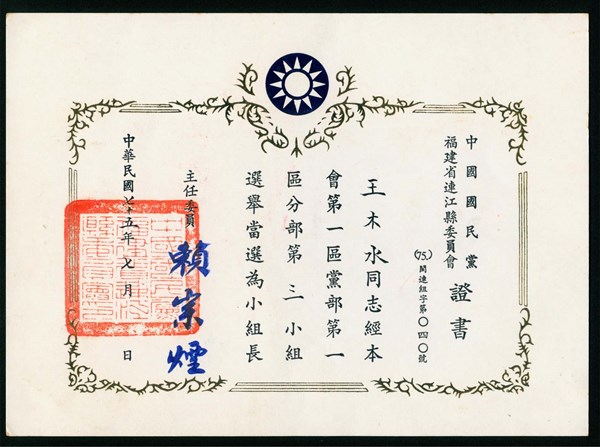 中國國民黨
福建省連江縣委員會
證書
(75.)閩連組字第〇四〇號
王木水同志經本
會第一區黨部第一
區分部第三小組
選舉當選為小組長
主任委員
賴宗煙
中華民國七十五年七月 日